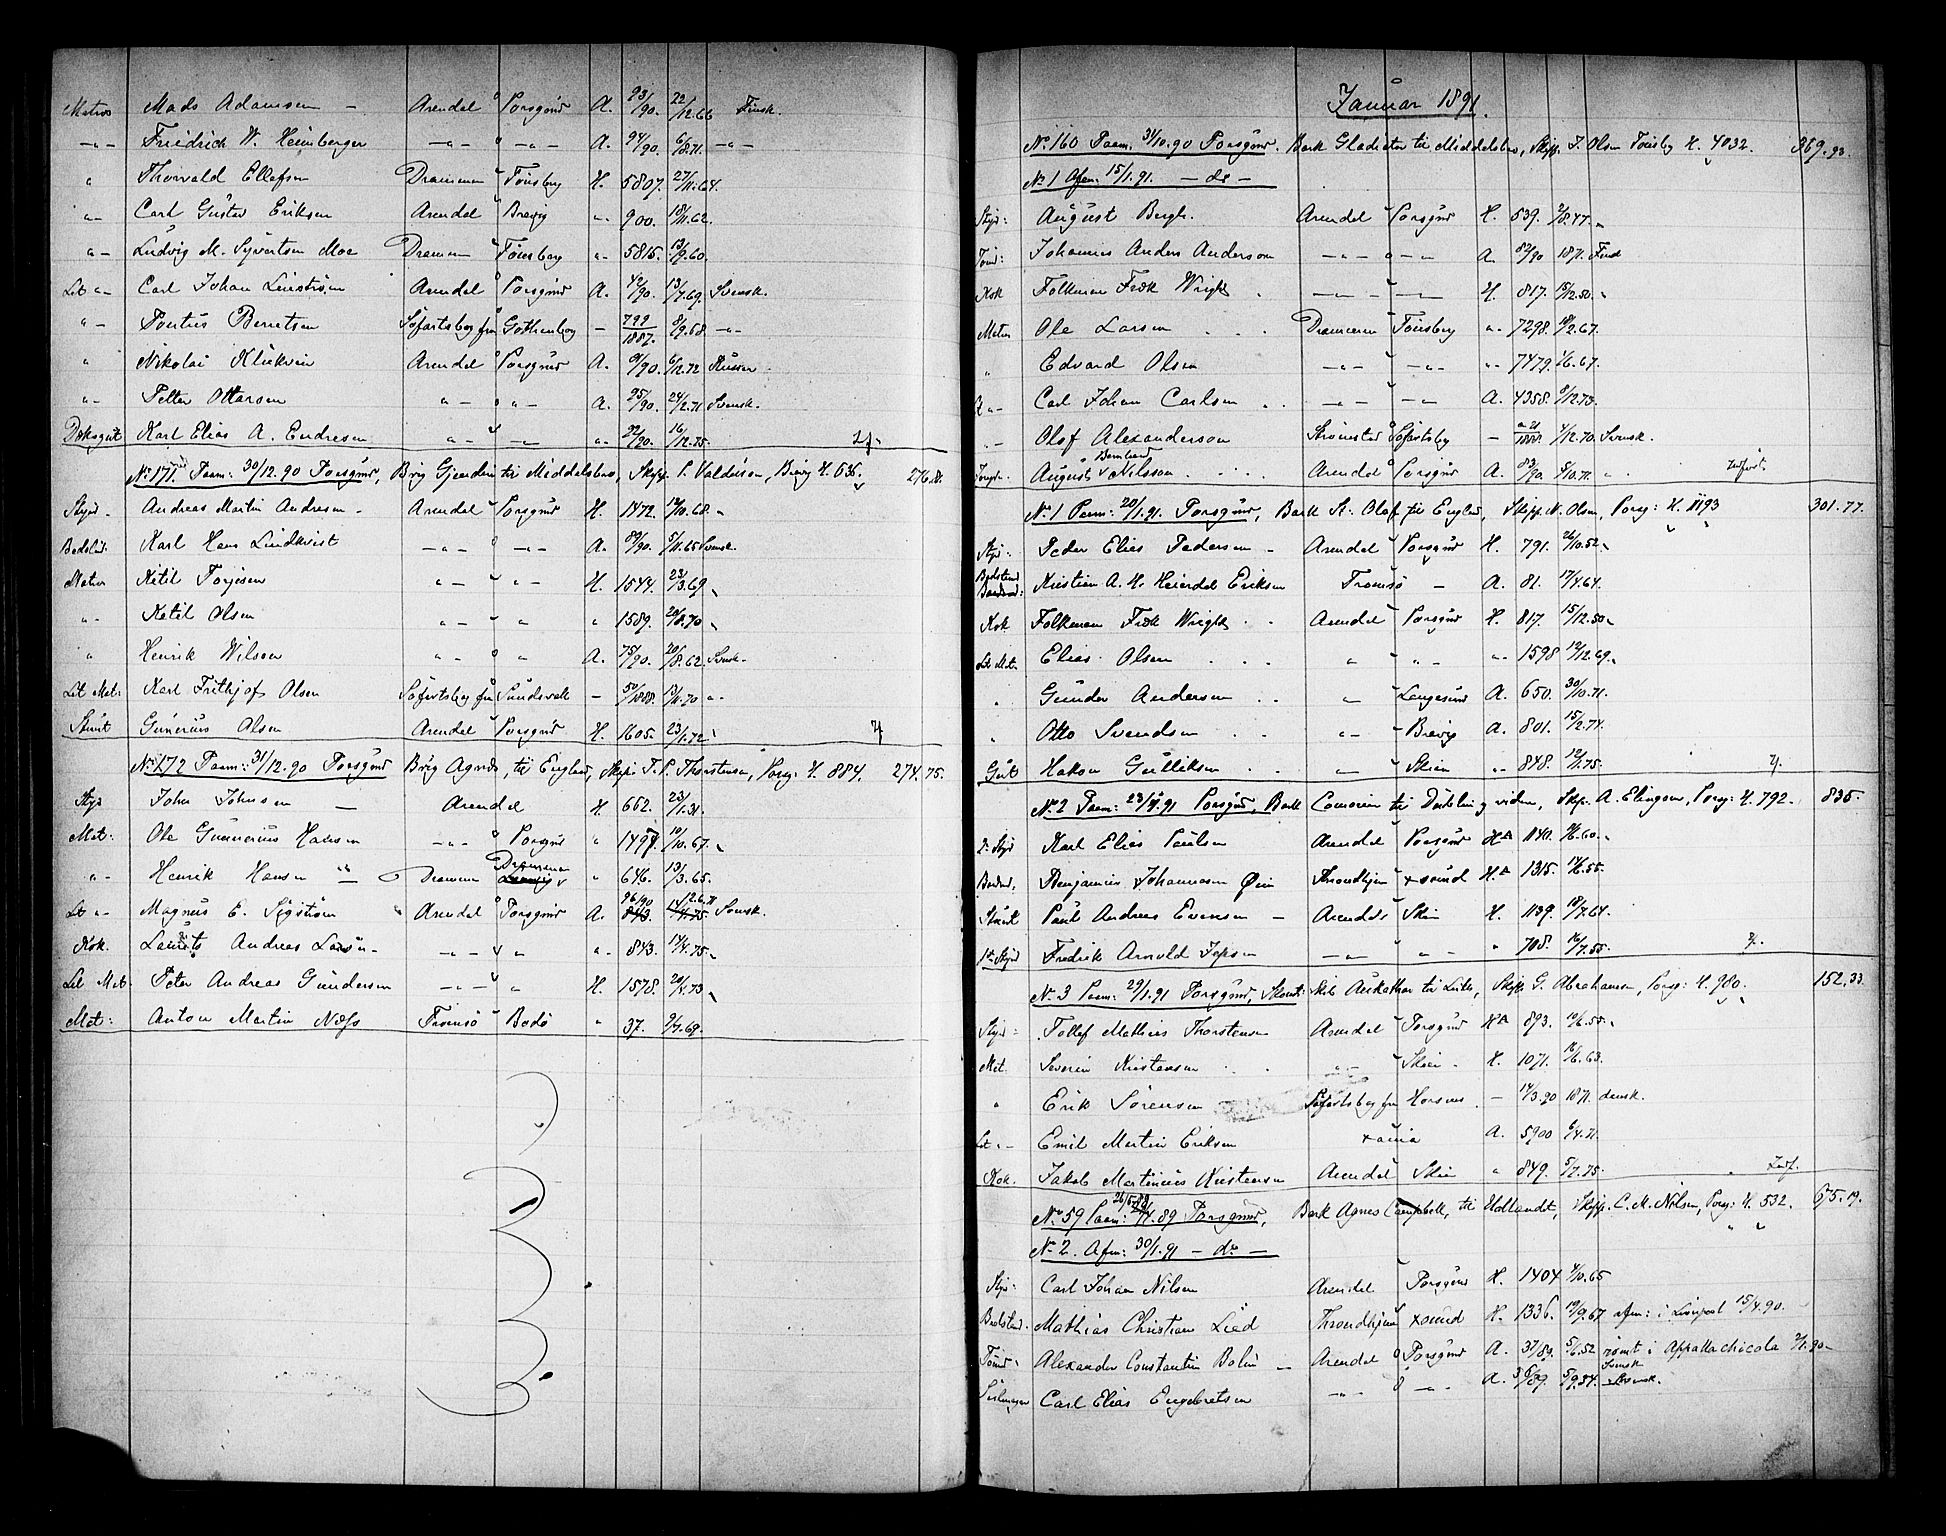 Matros Mads Adamsen - Arendal Porsgrund A. 93/90. 22/12.66 Finsk.
-"- Friedrich W. Heimberger -"- -"- A. 94/90. 6/8.71. -"-
" Thorvald Ellefsen Drammen Tønsberg H. 5807. 27/11.64.
"- Carl Gustav Eriksen Arendal Brevig "- 900. 18/11.62.
"- Ludvig M. Syvertsen Moe Drammen Tønsberg "- 5815. 13/9.60.
Let "- Carl Johan Linstrøm Arendal Porsgrund A. 42/90. 13/7.69. Svensk.
"- Pontus Berntsen Søfartsbog fra Gothenborg - 799/1887. 8/9.68. -"-
" Nikolai Klukvin Arendal Porsgrund A. 91/90. 6/12.72 Russer
"- Petter Ottarsen "- "- A. 95/90. 24/2.71 Svensk.
Dæksgut Karl Elias A. Endresen "- -"- "- 22/90. 16/12.75.
No 171 Paam: 30/12.90 Porsgrund, Brig Gjendin til Middelsbro, Skpp. P. Valdersen, Brevig H. 636. 276.18.
Styrm. Andreas Martin Andresen - Arendal Porsgrund H. 1472. 12/10.68. "
Karl Hans Lindkvist -"- -"- A. 89/90. 5/11.65 Svensk.
Matros Ketil Torjesen "- "- H. 1544. 23/3.69 "
"- Ketil Olsen "- " " 1589. 20/8.70 "
" Henrik Wilson "- " A. 75/90. 20/8.62. Svensk.
Let Mat: Karl Frithjof Olsen Søfartsbog fra Sundsvall - 50/1888. 13/11.70 "-
Stuert Gunerius Olsen Arendal Porsgrund H. 1605. 23/1.72
No 172 Paam: 31/12.90 Porsgrund Brig Agnes, til England, Skpp. T. P. Thorstensen, Porsg: H. 884. 274.75.
Styr John Johnsen - Arendal H. 662. 23/1.31.
Mat: Ole Gunnerius Hansen -"- Porsgrund " 1497. 10/10.67. "
"- Henrik Hansen - Drammen Drammen " 646. 13/3.65.
Let "- Magnus E. Sigstrøm Arendal Porsgrund A. 96/90 14/12.67 Svensk.
Kok. Laurits Andreas Larsen - -"- " "- 843. 14/4.75. "
Let Mat. Peter Andreas Gundersen -"- " H. 1578. 20/4.73 "
Mat: Anton Martin Næss Tromsø Bodø " 37. 9/7.68.
Januar 1891.
No 160 Paam: 31/10.90 Porsgrund. Bark Gladiator til Middelsbro, Skpp. J. Olsen Tønsberg H. 4032. 369.93.
No 1 Afm: 15/1.91. - do -
Styr: August Bergh. Arendal Porsgrund H. 539. 2/8.47. "
Tømr: Johannes Anders Anderson -"- -"- A. 82/90 1871. Finsk
Kok Folkman Fredk Wright - -"- -"- H. 817. 15/12.50. "
Matros Ole Larsen Drammen Tønsberg "- 7298. 18/2.67.
" Edvard Olsen -"- -"- "- 7479. 1/6.67.
Let "- Carl Johan Carlsen -"- -"- A. 4358. 8/12.73.
"- Olof Alexanderson Strømstad Søfartsbog - 1/12.70. Svensk.
August Bernhard Nilsson Arendal Porsgrund A. 83/90. 5/10.71. " Indført.
No 1 Paam: 20/1.91. Porsgrund, Bark St. Olaf til England, Skpp. N. Olsen, Porsg: H. 1193 301.77.
Styr: Peder Elias Pedersen - Arendal Porsgrund H. 791. 26/10.52. "
Baadsmand: Kristian A. H. Heierdal Eriksen Tromsø - A. 81. 17/4.64.
Kok Folkman Fredk Wright Arendal Porsgrund H. 817. 15/12.50. "
Let Mat. Elias Olsen " "- "- 1598 12/12.69. "
" Gunder Andersen " Langesund A. 650. 30/10.71.
" Otto Svendsen "- Brevig A. 801. 15/2.74.
Gut Hakon Gulliksen -"- Skien "- 848. 12/1.75.
No 2 Paam: 23/1.91 Porsgrund, Bark Comorin til Dublin og viden, Skpp. A. Elingsen, Porsg: H. 792. 835.
2. Styr Karl Elias Paulsen Arendal Porsgrund HA 1140. 9/6.60. "
Baadsm. Benjamin Johannesen Øien Throndhjem xsund HA 1315. 14/6.55.
Stuert Paul Andreas Evensen - Arendal Skien H. 1139. 18/7.64.
1te Styr Fredrik Arnold Jepsen -"- "- " 708. 16/7.55.
No 3 Paam: 29/1.91 Porsgrund, Skonnt: Skib Aukathar til Leith, Skpp. G. Abrahamsen, Porsg: H. 980. 152.33.
Styr: Tollef Mathias Thorstensen Arendal Porsgrund HA 893. 10/6.55. "
Mat. Severin Kristensen "- Skien - H. 1071. 16/6.63.
" Erik Sørensen Søfartsbog fra Horsens - 14/3.90 1871. dansk.
Let "- Emil Martin Eriksen xania A. 5900 6/4.71.
Kok. Jakob Martinius Kristensen Arendal Skien " 849. 5/7.75. Indf.
No 59 Paam: 26/6-29/7.89 Porsgrund, Bark Agnes Campbell, til Udlandet, Skpp. C. M. Nilsen, Porsg: H. 532. 675.19.
No 2. Afm: 30/1.91 - do -
Styr: Carl Johan Nilsen Arendal Porsgrund H. 1404 4/10.65
Mathias Christian Lied Throndhjem xsund H. 1336. 19/9.67 afm: i Liverpool 15/4.90.
Tømr. Alexander Constantin Bolin - Arendal Porsgrund A. 37/89. 5/6.52 rømt i Appallachicola 2/1.90
Svensk
Seilmager Carl Elias Engebretsen -"- -"- A. 36/89. 5/9.34. Svensk.